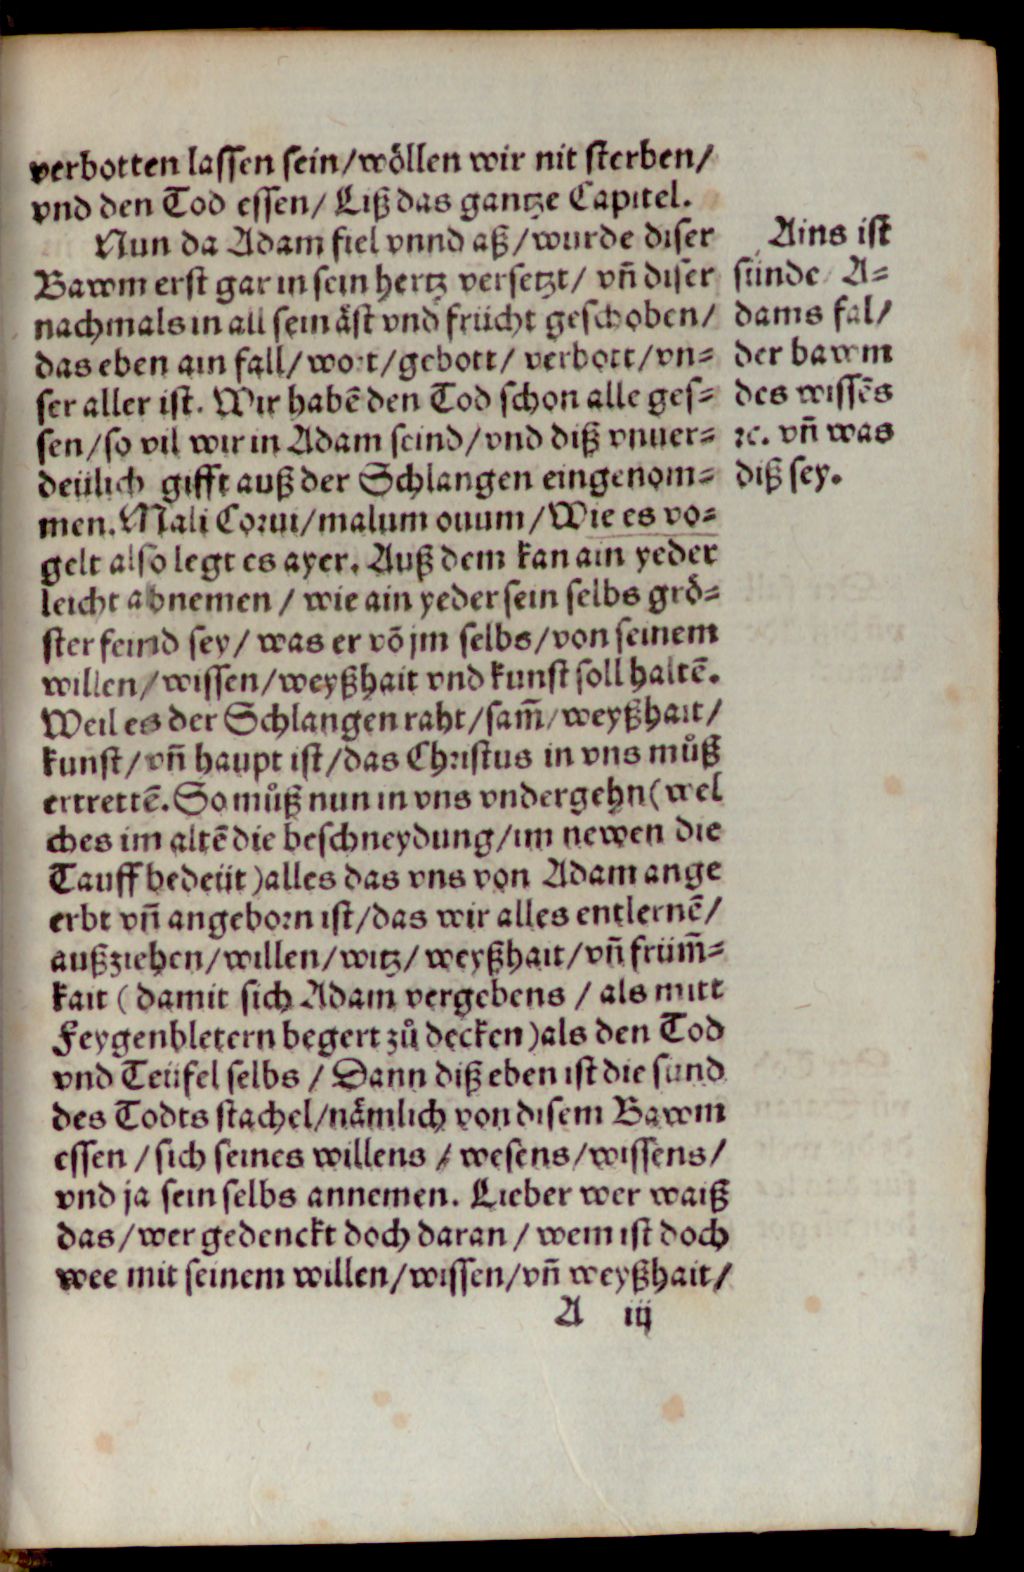 verbotten lassen sein/wöllen wir nit sterben/
vnd den Tod essen/ Liß das gantze Capitel.
Nun da Adam fiel vnnd aß/wurde diser
Bawm erst gar in sein hertz versetzt/ vñ diser
nachmals in all sein äst vnd frücht geschoben/
das eben ain fall/wort/gebott/ verbott/vn⸗
ser aller ist. Wir habē den Tod schon alle ges⸗
sen/so vil wir in Adam seind/vnd diß vnuer⸗
deülich gifft auß der Schlangen eingenom⸗
men. Mali Corui/malum ouum/Wie es vo⸗
gelt also legt es ayer. Auß dem kan ain yeder
leicht abnemen / wie ain yeder sein selbs grö⸗
ster feind sey/ was er võ jm selbs/von seinem
willen/wissen/weyßhait vnd kunst soll haltē.
Weil es der Schlangen raht/sam̃/weyßhait/
kunst/vñ haupt ist/das Christus in vns můß
ertrettē. So můß nun in vns vndergehn(wel
ches im altē die beschneydung/im newen die
Tauff bedeüt)alles das vns von Adam ange
erbt vñ angeborn ist/das wir alles entlernē/
außziehen/willen/witz/weyßhait/vñ früm̃⸗
kait (damit sich Adam vergebens / als mitt
Feygenbletern begert zů decken)als den Tod
vnd Teüfel selbs / Dann diß eben ist die sünd
des Todts stachel/nämlich von disem Bawm
essen /sich seines willens / wesens/wissens/
vnd ja sein selbs annemen. Lieber wer waiß
das/wer gedenckt doch daran / wem ist doch
wee mit seinem willen/wissen/vñ weyßhait/
A iij
Ains ist
sünde A⸗
dams fal/
der bawm
des wissēs
ꝛc. vñ was
diß sey.